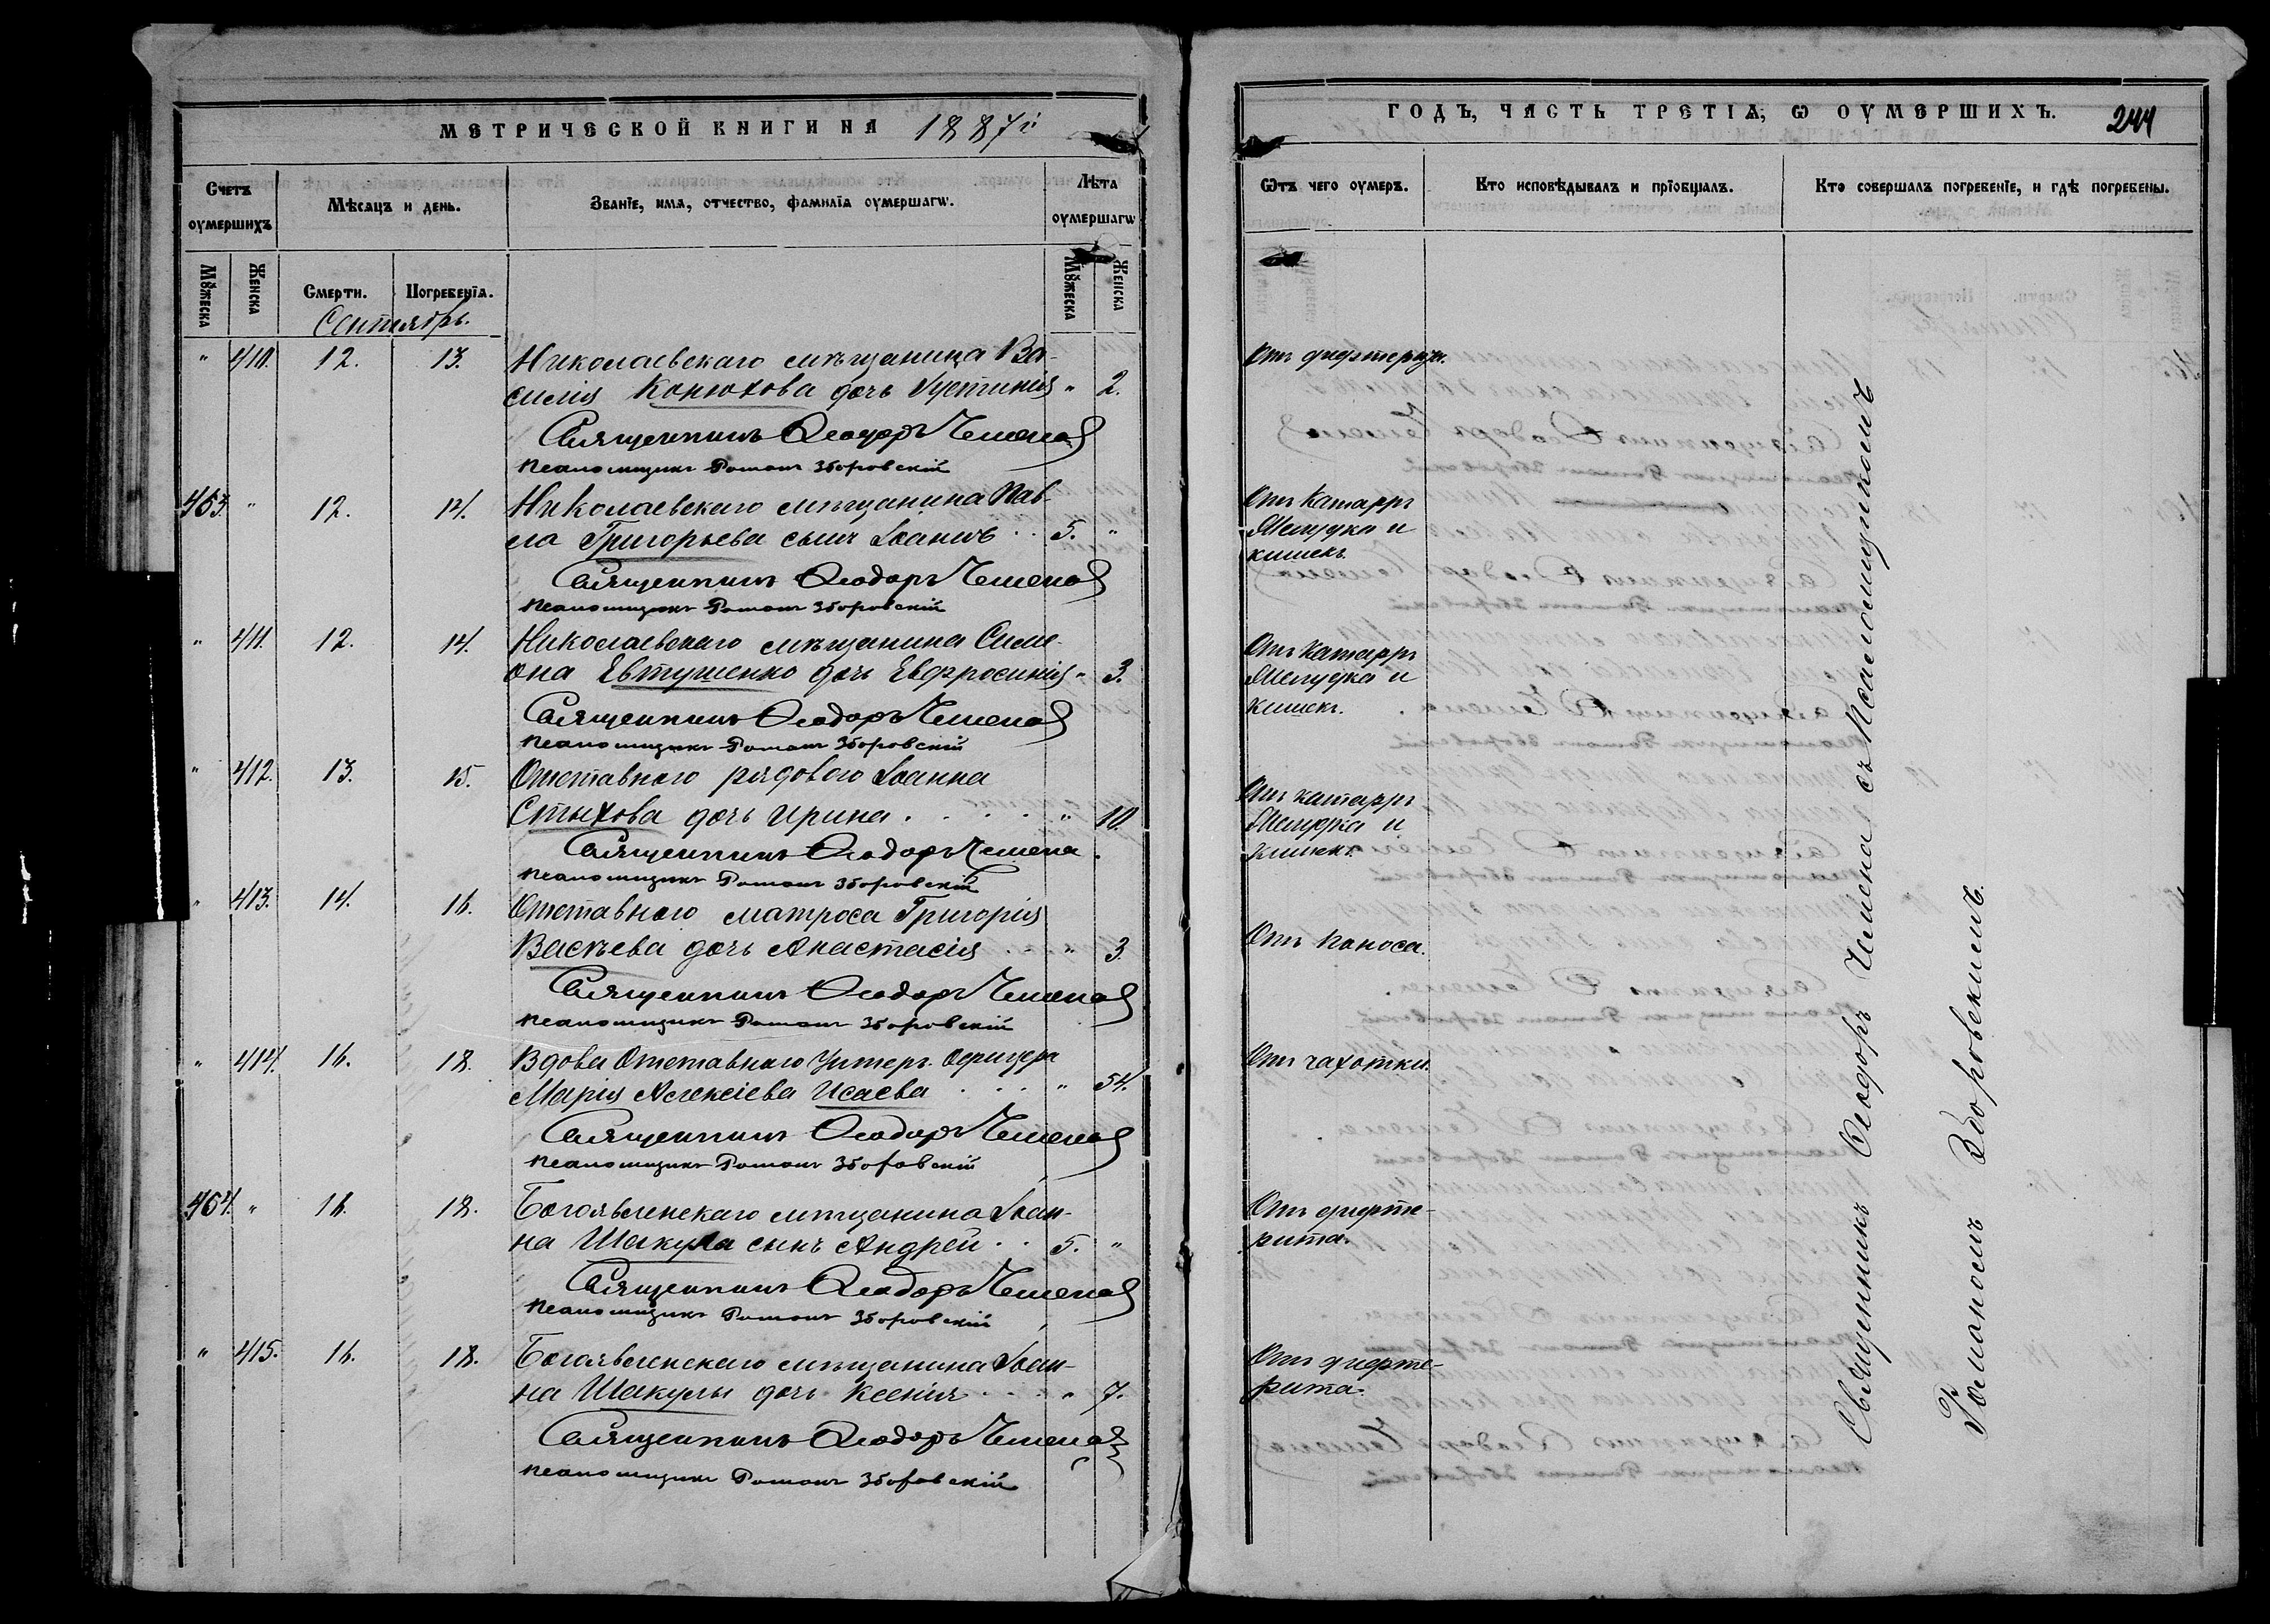 МЕТРИЧЕСКОЙ КНИГИ НА 1887й
Счетъ оумершихъ
Мѣсяцъ и день.
Званїе, имя, отчество, фамилїя оумершагѡ.
Лѣта оумершагѡ
Мꙋжеска
Женска
Смерти.
Погребенїя.
Мꙋжеска
Женска
Сентябрь.
" 410. 12. 13. Николаевскаго мѣщанина Ва-
силія Конюхова дочь Іустинія " 2.
Священникъ Ѳеодоръ Чемена
Псаломщикъ Романъ Зборовскій
463. " 12. 14. Николаевскаго мѣщанина Пав-
ла Григорьева сынъ Іоаннъ . . 5. "
Священникъ Ѳеодоръ Чемена
Псаломщикъ Романъ Зборовскій
" 411. 12. 14. Николаевскаго мѣщанина Симе-
она Евтушенко дочь Евфросинія " 3.
Священникъ Ѳеодоръ Чемена
Псаломщикъ Романъ Зборовскій
" 412. 13. 15. Отставного рядового Іоанна
Стыхова дочь Ирина . . . . . " 10.
Священникъ Ѳеодоръ Чемена.
Псаломщикъ Романъ Зборовскій
" 413. 14. 16. Отставного матроса Григорія
Васкѣева дочь Анастасія . . . " 3.
Священникъ Ѳеодоръ Чемена
Псаломщикъ Романъ Зборовскій
" 414. 16. 18. Вдова Отставного Унтеръ. Офицера
Марія Алексіева Исаева . . . " 54.
Священникъ Ѳеодоръ Чемена
Псаломщикъ Романъ Зборовскій
464. " 16. 18. Богоявленскаго мѣщанина Іоан-
на Шакула сынъ Андрей . . 5. "
Священникъ Ѳеодоръ Чемена
Псаломщикъ Романъ Зборовскій
" 415. 16. 18. Богоявленскаго мѣщанина Іоан-
на Шакулы дочь Ксенія . . . . " 7.
Священникъ Ѳеодоръ Чемена
Псаломщикъ Романъ Зборовскій
ГОДЪ, ЧАСТЬ ТРЕТІѦ, Ѡ ОУМЕРШИХЪ. 244
Ѿтъ чего оумеръ.
Кто исповѣдывалъ и прїобщалъ.
Кто совершалъ погребенїе, и гдѣ погребены.
Отъ дифтеріи.
Отъ Катарръ
Желудка и
кишекъ.
Отъ Катарръ
Желудка и
Кишекъ.
Отъ катарръ
Желудка и
Кишекъ.
Отъ Поноса.
Отъ чахотки.
Отъ дифте-
рита.
Отъ дифте-
рита.
Священникъ Ѳеодоръ Чемена съ Псаломщикомъ
Романомъ Зборовскимъ.